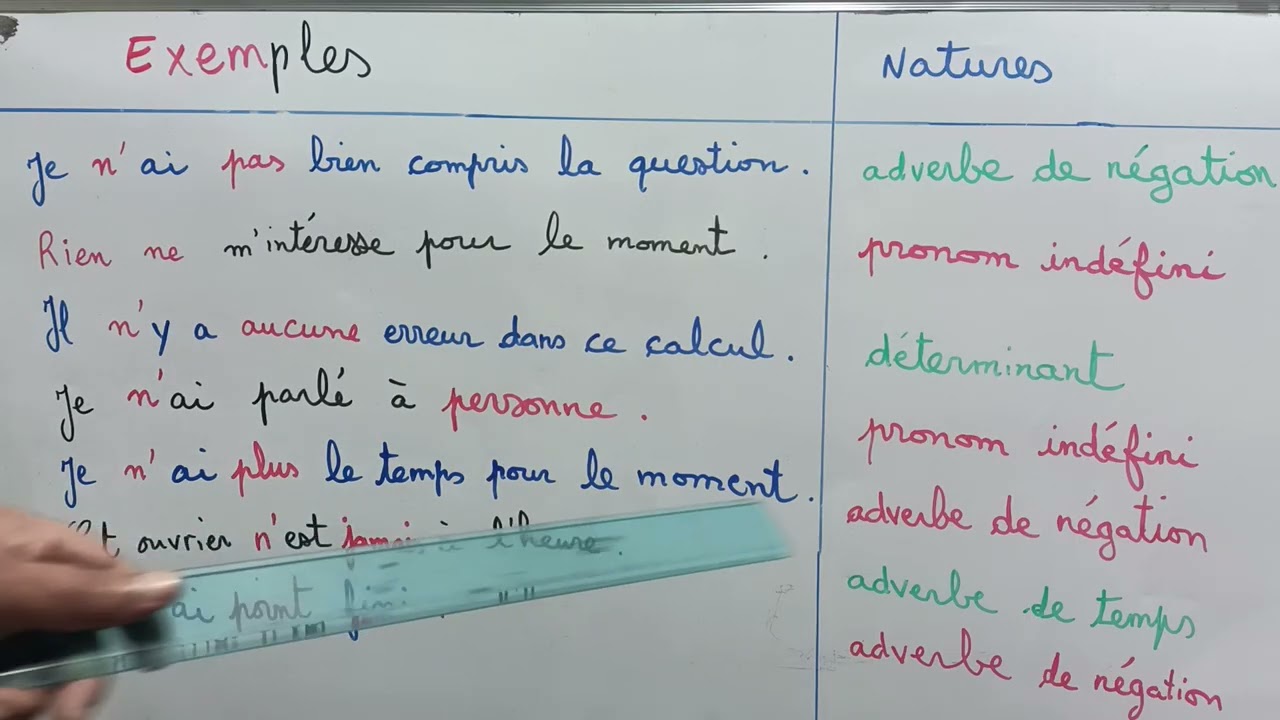 Exemples
Natures
Je n'ai pas bien compris la question.
adverbe de négation
Rien ne m'intéresse pour le moment.
pronom indéfini
Il n'y a aucune erreur dans ce calcul.
déterminant
Je n'ai parlé à personne.
pronom indéfini
Je n'ai plus le temps pour le moment.
adverbe de négation
ouvrier n'est jamais à l'heure.
adverbe de temps
ai point fini
adverbe de négation